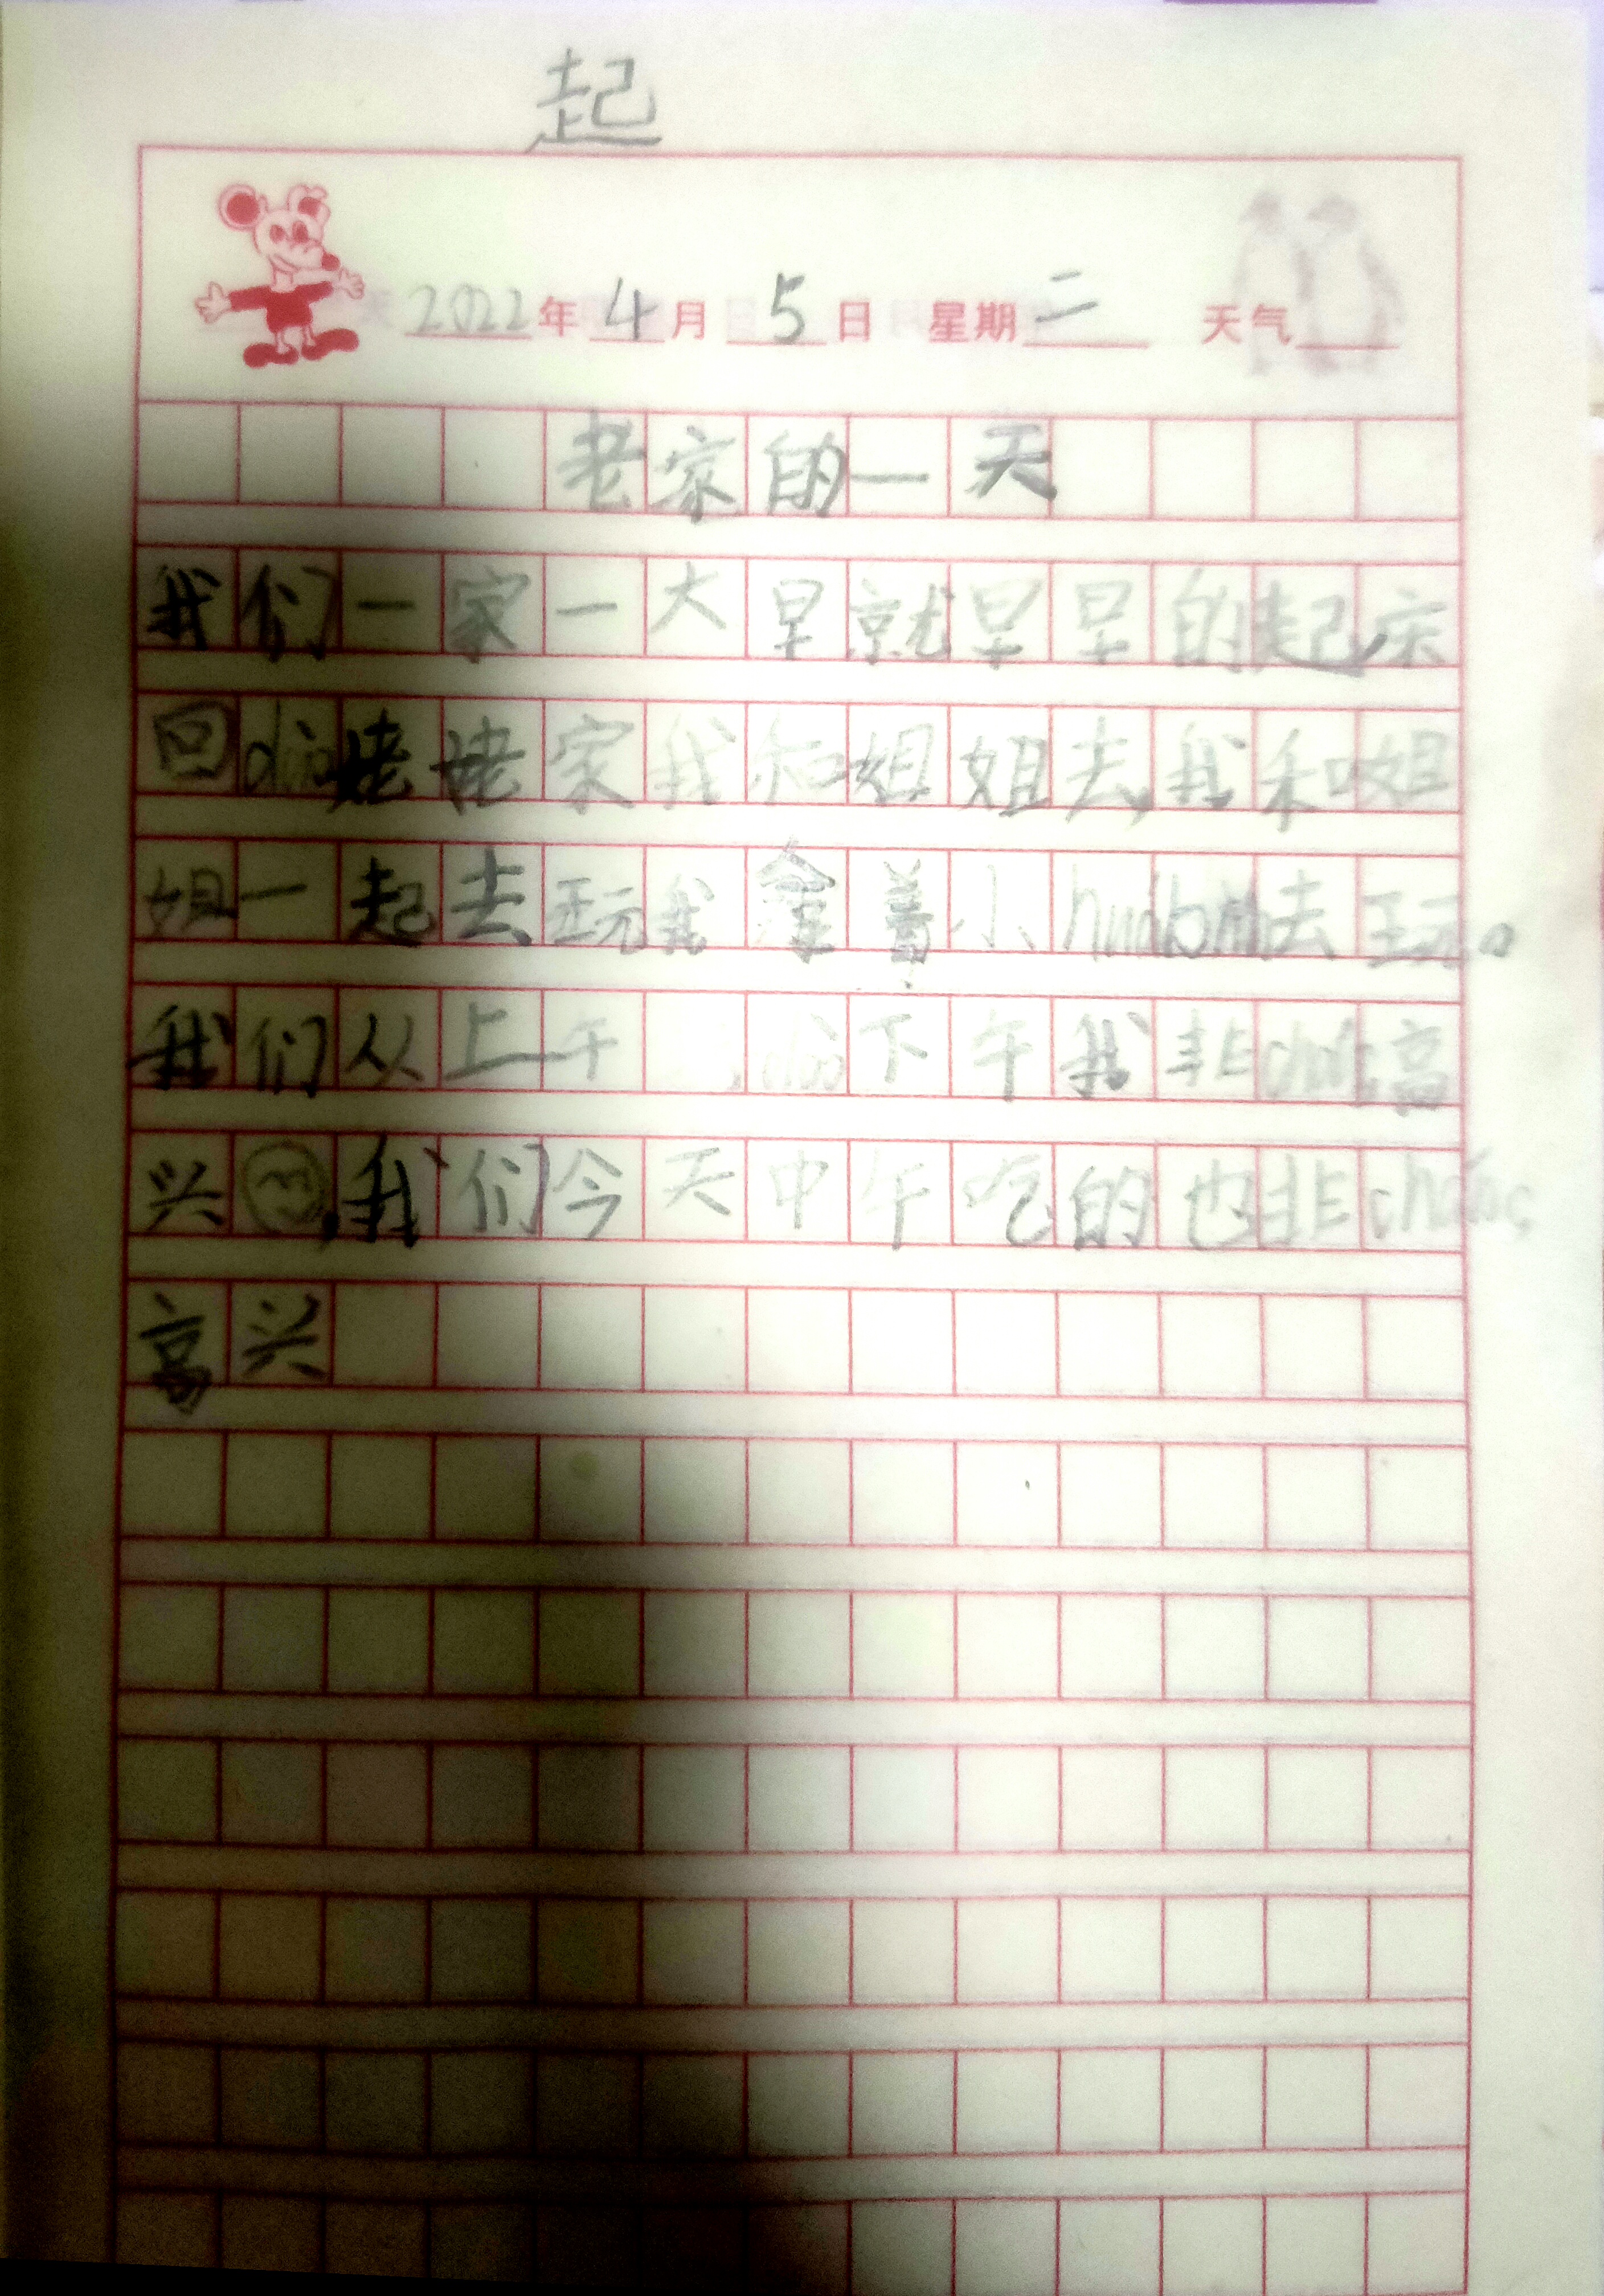 起
2022年4月5日 星期二 天气
老家的一天
我们一家一大早就早早的起床
回dào姥姥家我和姐姐去,我和姐
姐一起去玩我拿着小huábǎn去玩。
我们从上午dào下午我非cháng高
兴,我们今天中午吃的也非cháng
高兴